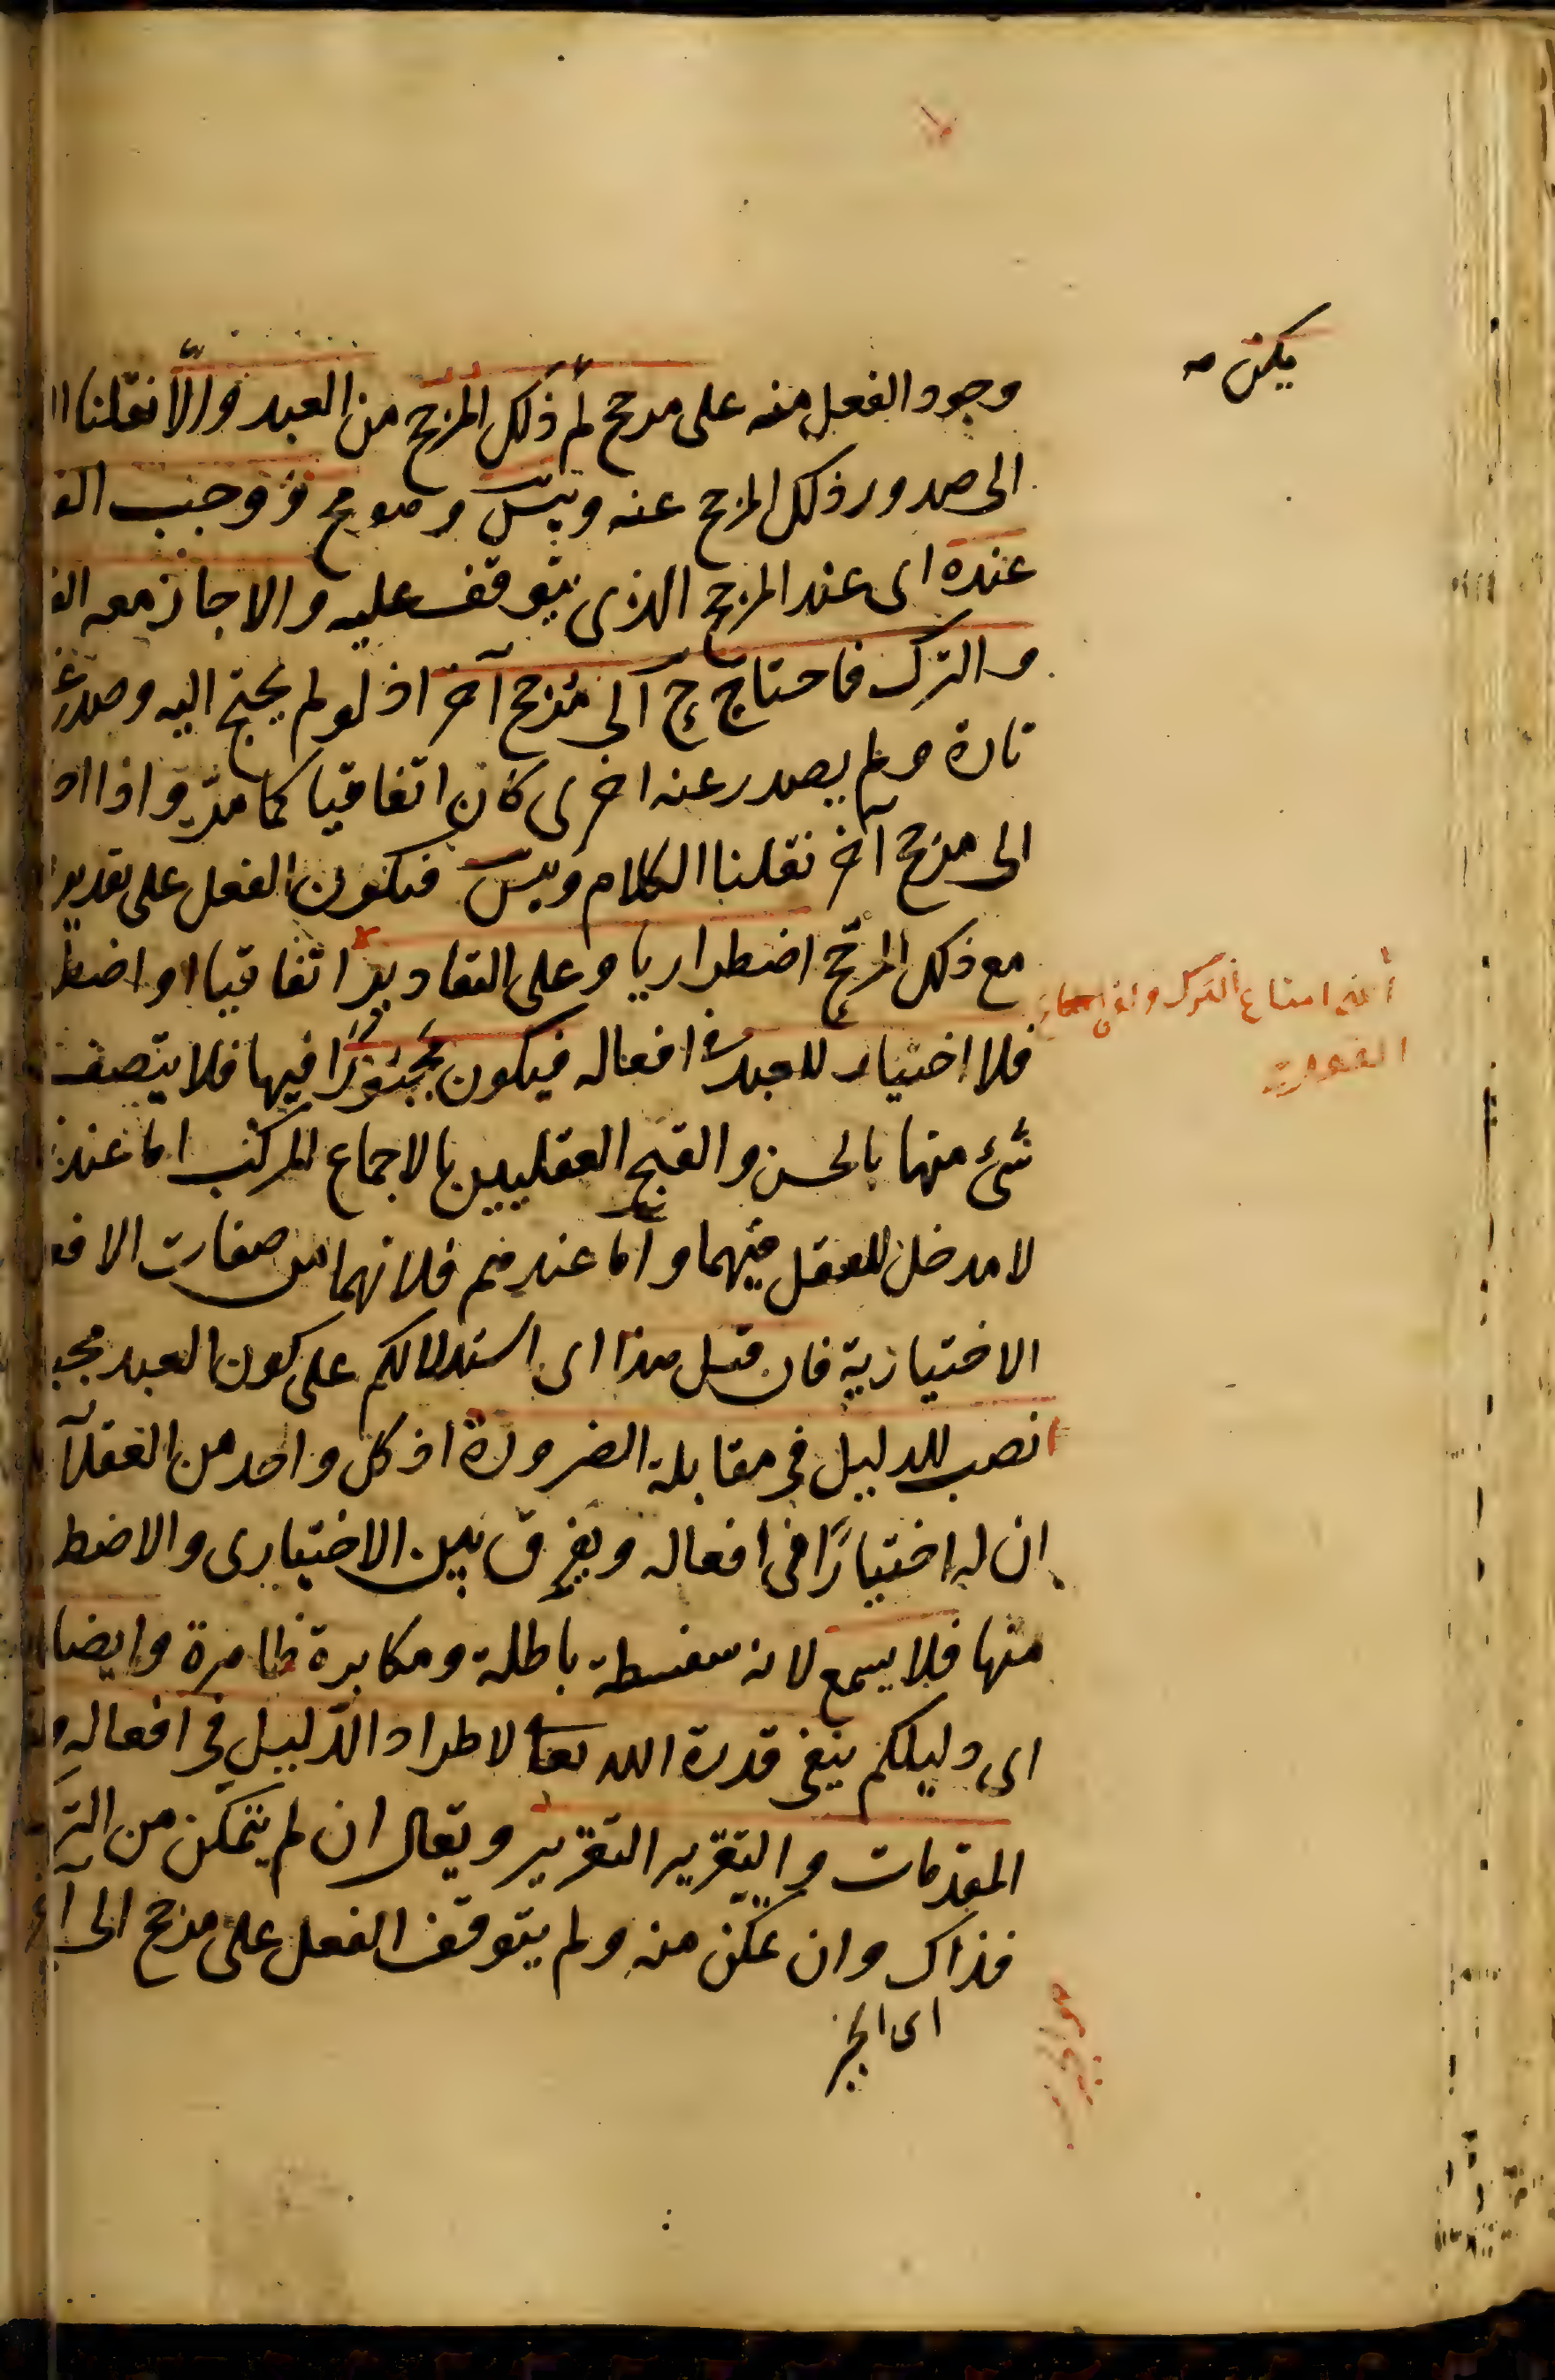 يكن صح
وجود الفعل منه على مرجح لم ذلك المرجح من العبد والا نقلنا
الى صدور ذلك المرجح عنه ويتس وهو مح ووجب
عنده اى عند المرجح الذى يتوقف عليه والا جاز معه
والترك فاحتاج ح الى مرجح آخر اذ لو لم يحتج اليه وصدر عنه
تارة ولم يصدر عنه اخرى كان اتفاقيا كما مر واذا
الى مرجح آخر نقلنا الكلام ويتس فيكون الفعل على تقدير
مع ذلك المرجح اضطراريا وعلى التقادير اتفاقيا او اضطر
اعنى امتناع الترك و
فلا اختيار للعبد فى افعاله فيكون مجبورا فيها فلا يتصف
شئ منها بالحسن والقبح العقليين بالاجماع المركب اما عندنا
لا مدخل للعقل فيهما واما عندهم فلانهما من صفات الافع
الاختيارية فان قيل هذا اى استدلالكم على كون العبد مجب
نصب للدليل فى مقابلة الضرورة اذ كل واحد من العقلآ
ان له اختيارًا فى افعاله ويفرق بين الاختيارى والاضط
منها فلا يسمع لانه سفسطة باطلة ومكابرة ظاهرة وايضا
اى دليلكم ينفى قدرة الله تعا لاطراد الدليل فى افعاله و
المقدمات والتقرير التقرير ويقال ان لم يتمكن من التر
فذاك وان تمكن منه ولم يتوقف الفعل على مرجح الى آخ
اى الجبر